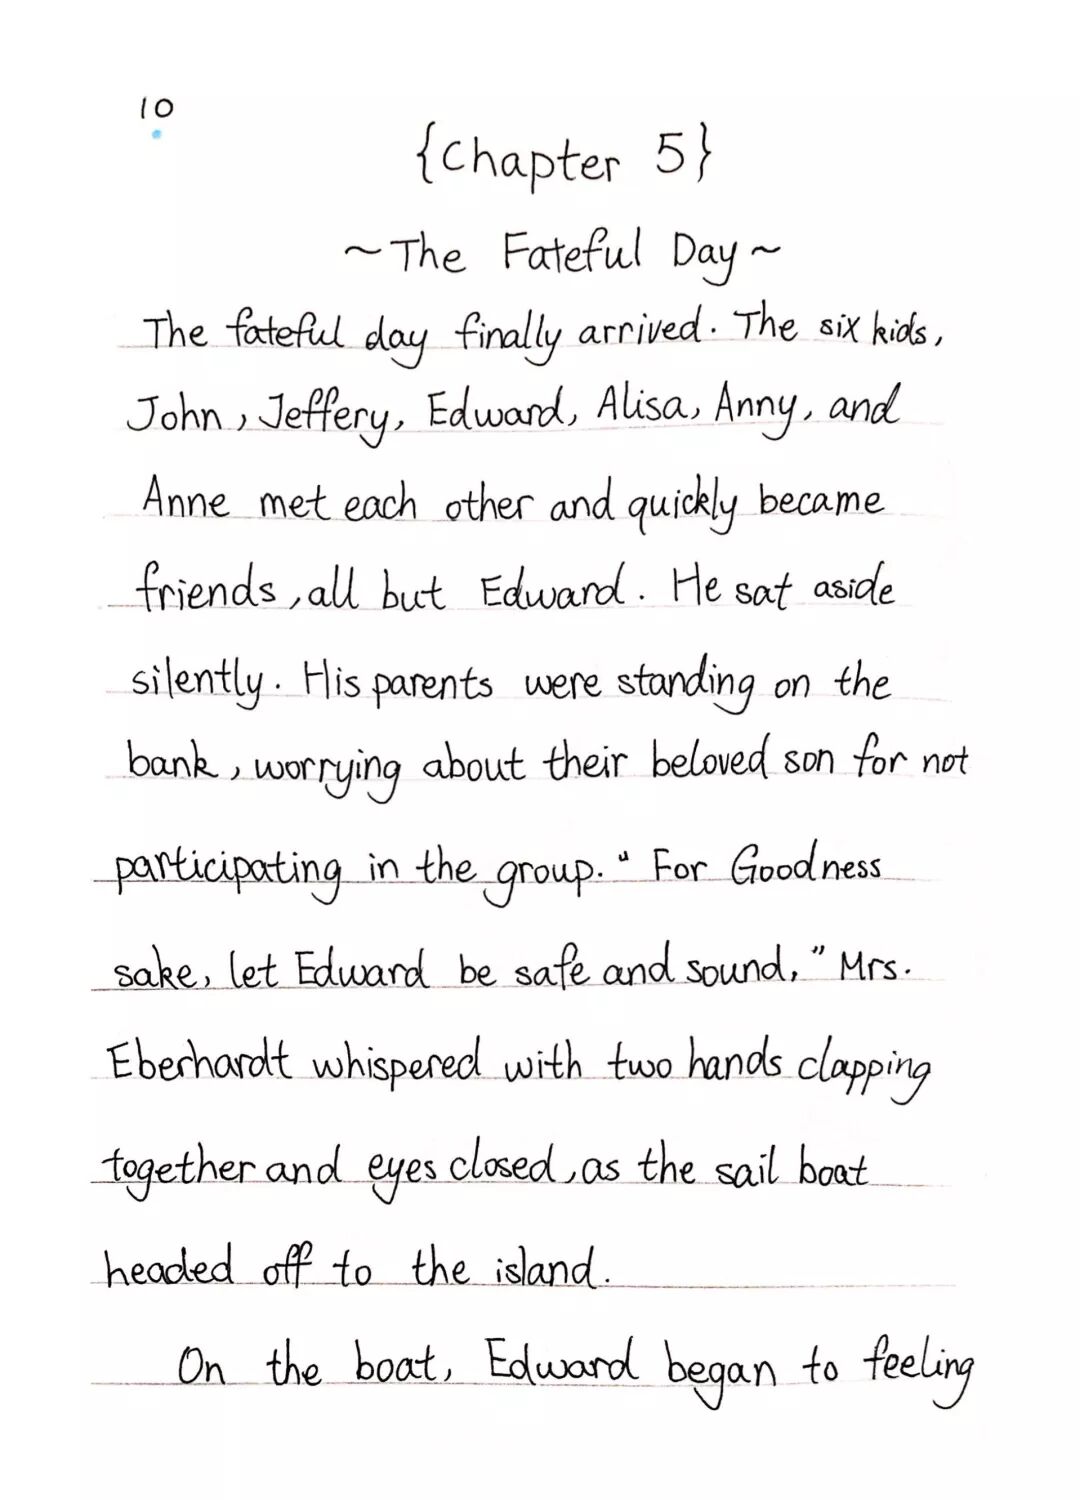 10
{Chapter 5}
~The Fateful Day~
The fateful day finally arrived. The six kids,
John, Jeffery, Edward, Alisa, Anny, and
Anne met each other and quickly became
friends, all but Edward. He sat aside
silently. His parents were standing on the
bank, worrying about their beloved son for not
participating in the group. "For Goodness
sake, let Edward be safe and sound," Mrs.
Eberhardt whispered with two hands clapping
together and eyes closed, as the sail boat
headed off to the island.
On the boat, Edward began to feeling